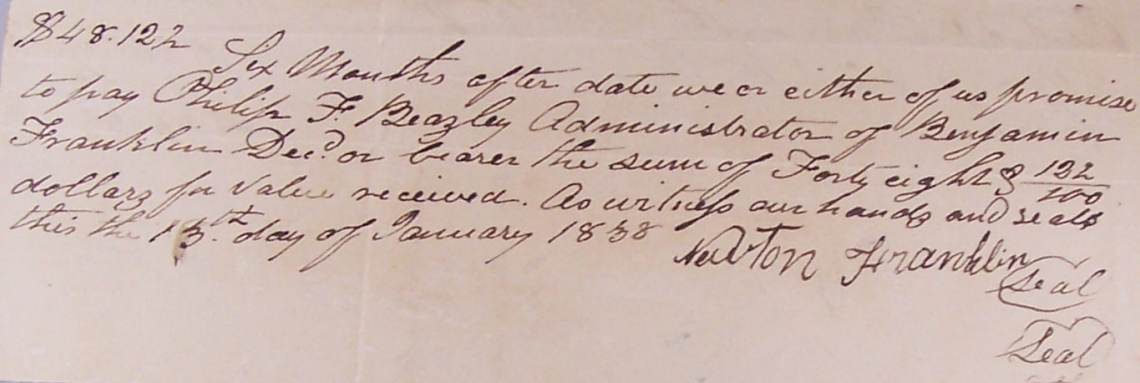 $48.12½
Six Months after date we or either of us promise
to pay Philip F. Beazley Administrator of Benjamin
Franklin Decd. or bearer the sum of Forty eight & 12½/100
dollars for value received. As witness our hands and seals
this the 13th. day of January 1838
Newton Franklin
Seal
Seal